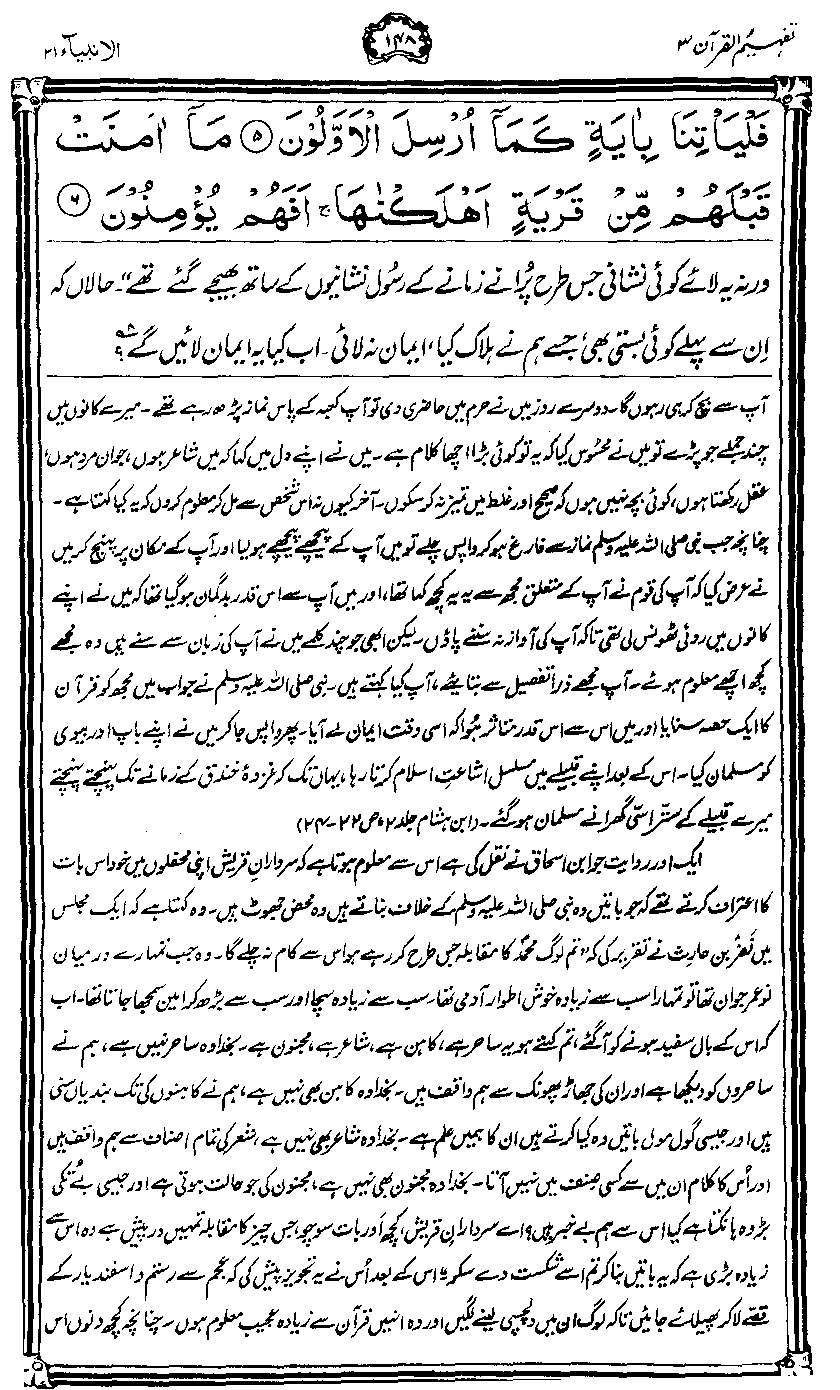 تفہیم القرآن ۳
۱۴۸
الانبیاء ۲۱
فَلْيَاْتِنَا بِاٰيَةٍ كَمَآ اُرْسِلَ الْاَوَّلُوْنَ ﴿۵﴾ مَآ اٰمَنَتْ
قَبْلَهُمْ مِّنْ قَرْيَةٍ اَهْلَكْنٰهَا ۚ اَفَهُمْ يُؤْمِنُوْنَ ﴿۶﴾
ورنہ یہ لائے کوئی نشانی جس طرح پُرانے زمانے کے رسُول نشانیوں کے ساتھ بھیجے گئے تھے“۔ حالاں کہ
اِن سے پہلے کوئی بستی بھی، جسے ہم نے ہلاک کیا، ایمان نہ لائی۔ اب کیا یہ ایمان لائیں گے؟
آپ سے بچ کر ہی رہوں گا۔ دوسرے روز میں نے حرم میں حاضری دی تو آپ کعبہ کے پاس نماز پڑھ رہے تھے۔ میرے کانوں میں
چند جملے جو پڑے تو میں نے محسُوس کیا کہ یہ تو کوئی بڑا اچھا کلام ہے۔ میں نے اپنے دل میں کہا کہ میں شاعر ہوں، جوان مرد ہوں،
عقل رکھتا ہوں، کوئی بچہ نہیں ہوں کہ صحیح اور غلط میں تمیز نہ کر سکوں۔ آخر کیوں نہ اس شخص سے مل کر معلوم کروں کہ یہ کیا کہتا ہے۔
چنانچہ جب نبی صلی اللہ علیہ وسلم نماز سے فارغ ہو کر واپس چلے تو میں آپ کے پیچھے پیچھے ہو لیا اور آپ کے مکان پر پہنچ کر میں
نے عرض کیا کہ آپ کی قوم نے آپ کے متعلق مجھ سے یہ یہ کچھ کہا تھا، اور میں آپ سے اس قدر بدگمان ہو گیا تھا کہ میں نے اپنے
کانوں میں روئی ٹھونس لی تھی تاکہ آپ کی آواز نہ سننے پاؤں۔ لیکن ابھی جو چند کلمے میں نے آپ کی زبان سے سنے ہیں وہ مجھے
کچھ اچھے معلوم ہوئے۔ آپ مجھے ذرا تفصیل سے بتائیے، آپ کیا کہتے ہیں۔ نبی صلی اللہ علیہ وسلم نے جواب میں مجھ کو قرآن
کا ایک حصہ سنایا اور میں اس سے اس قدر متاثر ہُوا کہ اسی وقت ایمان لے آیا۔ پھر واپس جا کر میں نے اپنے باپ اور بیوی
کو مسلمان کیا۔ اس کے بعد اپنے قبیلے میں مسلسل اشاعتِ اسلام کرتا رہا، یہاں تک کہ غزوۂ خندق کے زمانے تک پہنچتے پہنچتے
میرے قبیلے کے ستر اسّی گھرانے مسلمان ہو گئے۔ (ابن ہشام جلد ۲، ص ۲۲-۲۴)
ایک اور روایت جو ابن اسحاق نے نقل کی ہے اس سے معلوم ہوتا ہے کہ سردارانِ قریش اپنی محفلوں میں خود اس بات
کا اعتراف کرتے تھے کہ جو باتیں وہ نبی صلی اللہ علیہ وسلم کے خلاف بناتے ہیں وہ محض جھوٹ ہیں۔ وہ کہتا ہے کہ ایک مجلس
میں نَضْر بن حارِث نے تقریر کی کہ ”تم لوگ محمدؐ کا مقابلہ جس طرح کر رہے ہو اس سے کام نہ چلے گا۔ وہ جب تمہارے درمیان
نو عمر جوان تھا تو تمہارا سب سے زیادہ خوش اطوار آدمی تھا۔ سب سے زیادہ سچا اور سب سے بڑھ کر امین سمجھا جاتا تھا۔ اب
کہ اس کے بال سفید ہونے کو آگئے، تم کہتے ہو یہ ساحر ہے، کاہن ہے، شاعر ہے، مجنون ہے۔ بخدا وہ ساحر نہیں ہے، ہم نے
ساحروں کو دیکھا ہے اور ان کی جھاڑ پھونک سے ہم واقف ہیں۔ بخدا وہ کاہن بھی نہیں ہے، ہم نے کاہنوں کی تک بندیاں سنی
ہیں اور جیسی گول مول باتیں وہ کیا کرتے ہیں ان کا ہمیں علم ہے۔ بخدا وہ شاعر بھی نہیں ہے، شعر کی تمام اصناف سے ہم واقف ہیں
اور اُس کا کلام ان میں سے کسی صنف میں نہیں آتا۔ بخدا وہ مجنون بھی نہیں ہے، مجنون کی جو حالت ہوتی ہے اور جیسی بے تُکی
بڑ وہ ہانکتا ہے کیا اس سے ہم بے خبر ہیں؟ اے سردارانِ قریش، کچھ اور بات سوچو، جس چیز کا مقابلہ تمہیں درپیش ہے وہ اس سے
زیادہ بڑی ہے کہ یہ باتیں بنا کر تم اسے شکست دے سکو“ اس کے بعد اُس نے یہ تجویز پیش کی کہ عجم سے رستم و اسفندیار کے
قصّے لا کر پھیلائے جائیں تاکہ لوگ ان میں دلچسپی لینے لگیں اور وہ انہیں قرآن سے زیادہ عجیب معلوم ہوں۔ چنانچہ کچھ دنوں اس